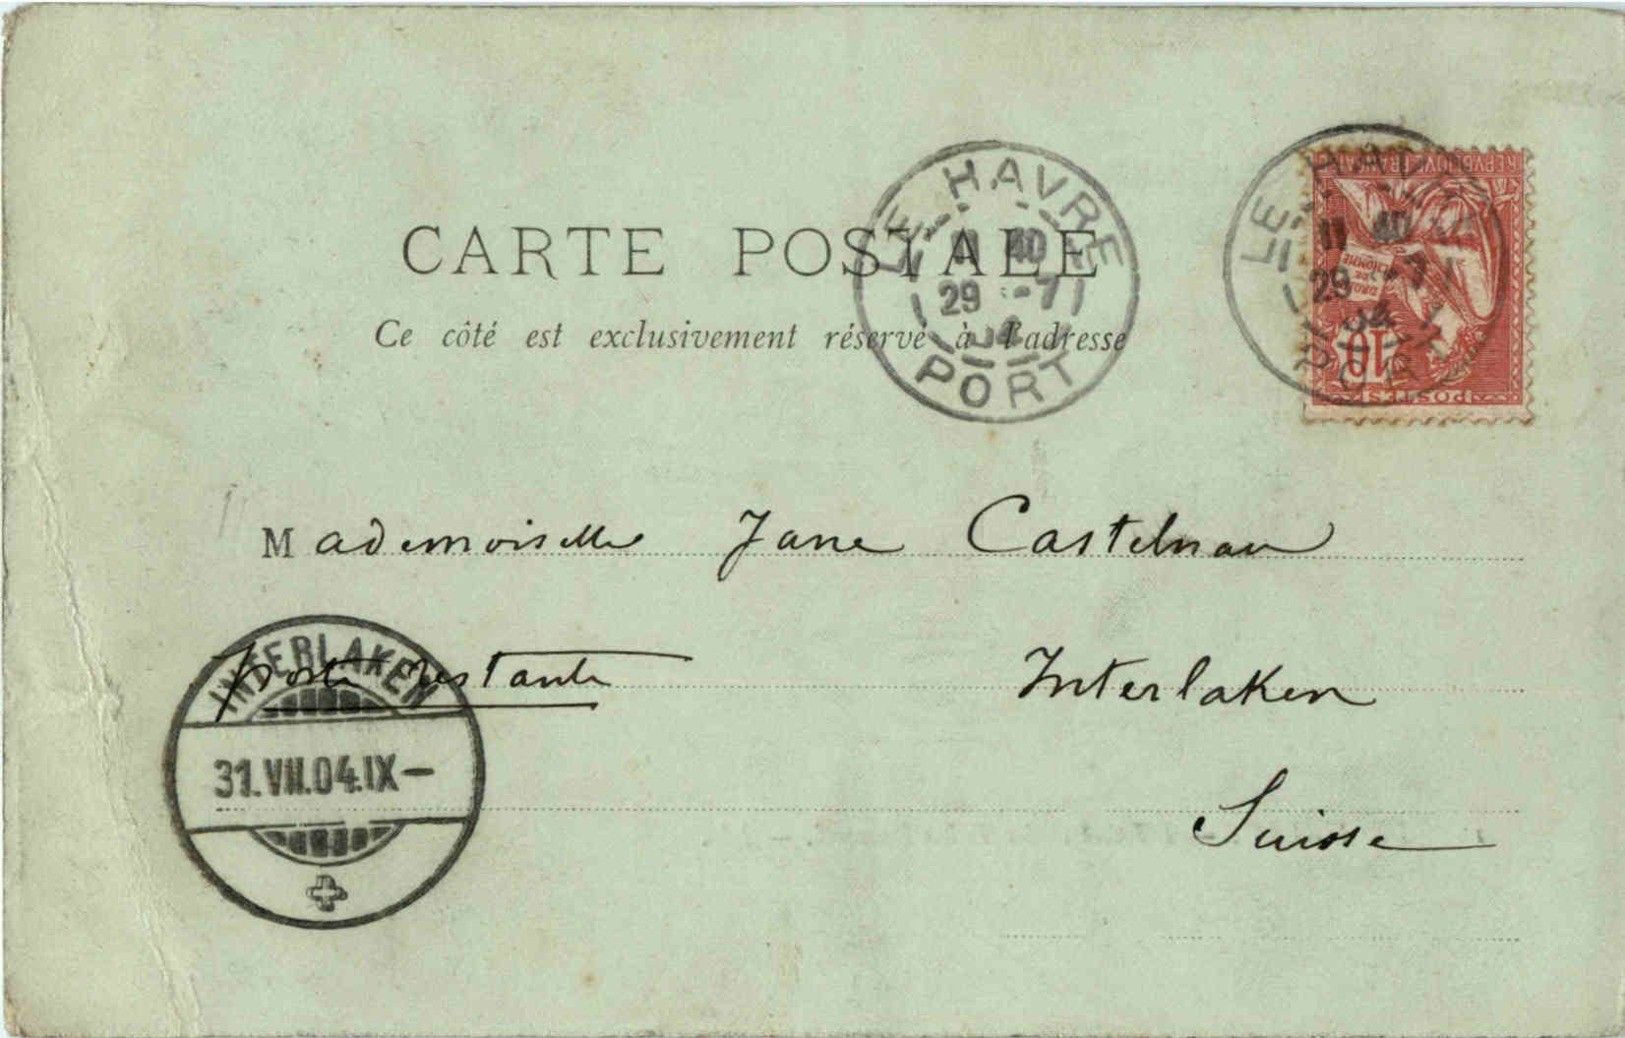 CARTE POSTALE
Ce côté est exclusivement réservé à l'adresse
LE HAVRE
11 40
29 -7
04
PORT
LE HAVRE
11 40
29 -7
04
PORT
REPUBLIQUE FRANCAISE
DROITS DE L'HOMME
10
POSTES
Mademoiselle Jane Castelnau
poste restante Interlaken
Suisse
INTERLAKEN
31.VII.04.IX—